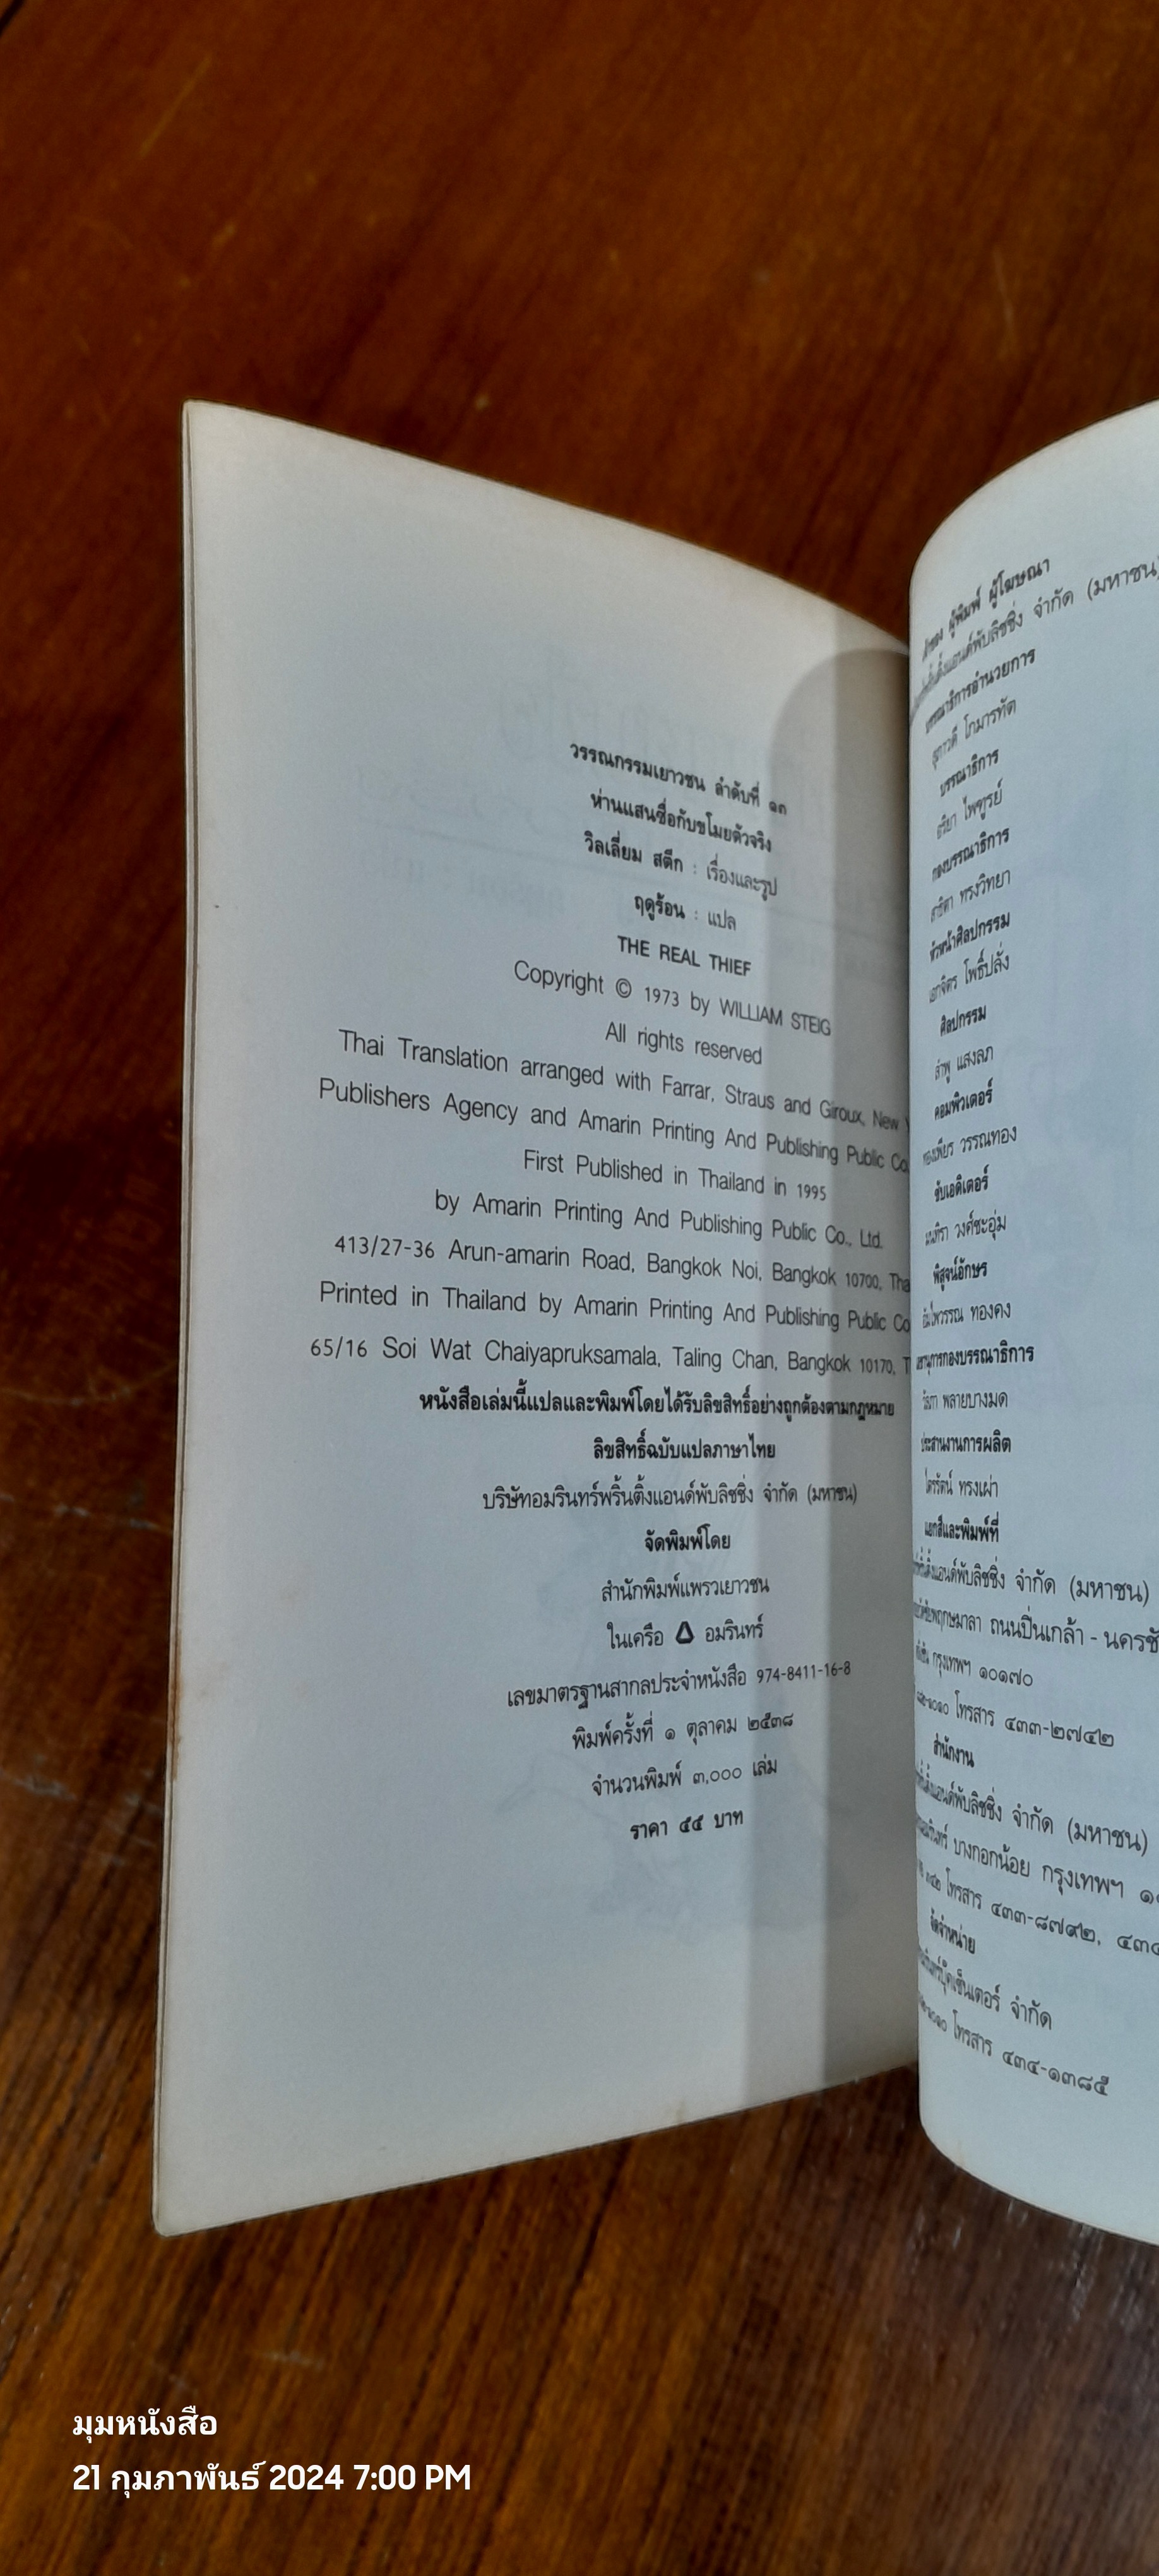 วรรณกรรมเยาวชน ลำดับที่ ๑๓
ห่านแสนซื่อกับขโมยตัวจริง
วิลเลี่ยม สตีก : เรื่องและรูป
ฤดูร้อน : แปล
THE REAL THIEF
Copyright © 1973 by WILLIAM STEIG
All rights reserved
Thai Translation arranged with Farrar, Straus and Giroux, New
Publishers Agency and Amarin Printing And Publishing Public Co.
First Published in Thailand in 1995
by Amarin Printing And Publishing Public Co., Ltd.
413/27-36 Arun-amarin Road, Bangkok Noi, Bangkok 10700, Tha
Printed in Thailand by Amarin Printing And Publishing Public Co
65/16 Soi Wat Chaiyapruksamala, Taling Chan, Bangkok 10170, T
หนังสือเล่มนี้แปลและพิมพ์โดยได้รับลิขสิทธิ์อย่างถูกต้องตามกฎหมาย
ลิขสิทธิ์ฉบับแปลภาษาไทย
บริษัทอมรินทร์พริ้นติ้งแอนด์พับลิชชิ่ง จำกัด (มหาชน)
จัดพิมพ์โดย
สำนักพิมพ์แพรวเยาวชน
ในเครือ อมรินทร์
เลขมาตรฐานสากลประจำหนังสือ 974-8411-16-8
พิมพ์ครั้งที่ ๑ ตุลาคม ๒๕๓๘
จำนวนพิมพ์ ๓,๐๐๐ เล่ม
ราคา ๕๕ บาท
ผู้พิมพ์ ผู้โฆษณา
จำกัด (มหาชน)
บรรณาธิการอำนวยการ
สุภาวดี โกมารทัต
บรรณาธิการ
ไพฑูรย์
กองบรรณาธิการ
ทรงวิทยา
หัวหน้าศิลปกรรม
เอกจิตร โพธิ์ปลั่ง
ศิลปกรรม
ลำพู แสงลภ
คอมพิวเตอร์
ทองเพียร วรรณทอง
ซับเอดิเตอร์
วงศ์ชะอุ่ม
พิสูจน์อักษร
ทองคง
เลขานุการกองบรรณาธิการ
พลายบางมด
ประสานงานการผลิต
ไตรรัตน์ ทรงเผ่า
แยกสีและพิมพ์ที่
จำกัด (มหาชน)
ถนนปิ่นเกล้า - นครชั
กรุงเทพฯ ๑๐๑๗๐
โทรสาร ๔๓๓-๒๗๔๒
สำนักงาน
จำกัด (มหาชน)
บางกอกน้อย กรุงเทพฯ
โทรสาร ๔๓๓-๘๗๙๒,
จัดจำหน่าย
จำกัด
โทรสาร ๔๓๔-๑๓๘๕
มุมหนังสือ
21 กุมภาพันธ์ 2024 7:00 PM